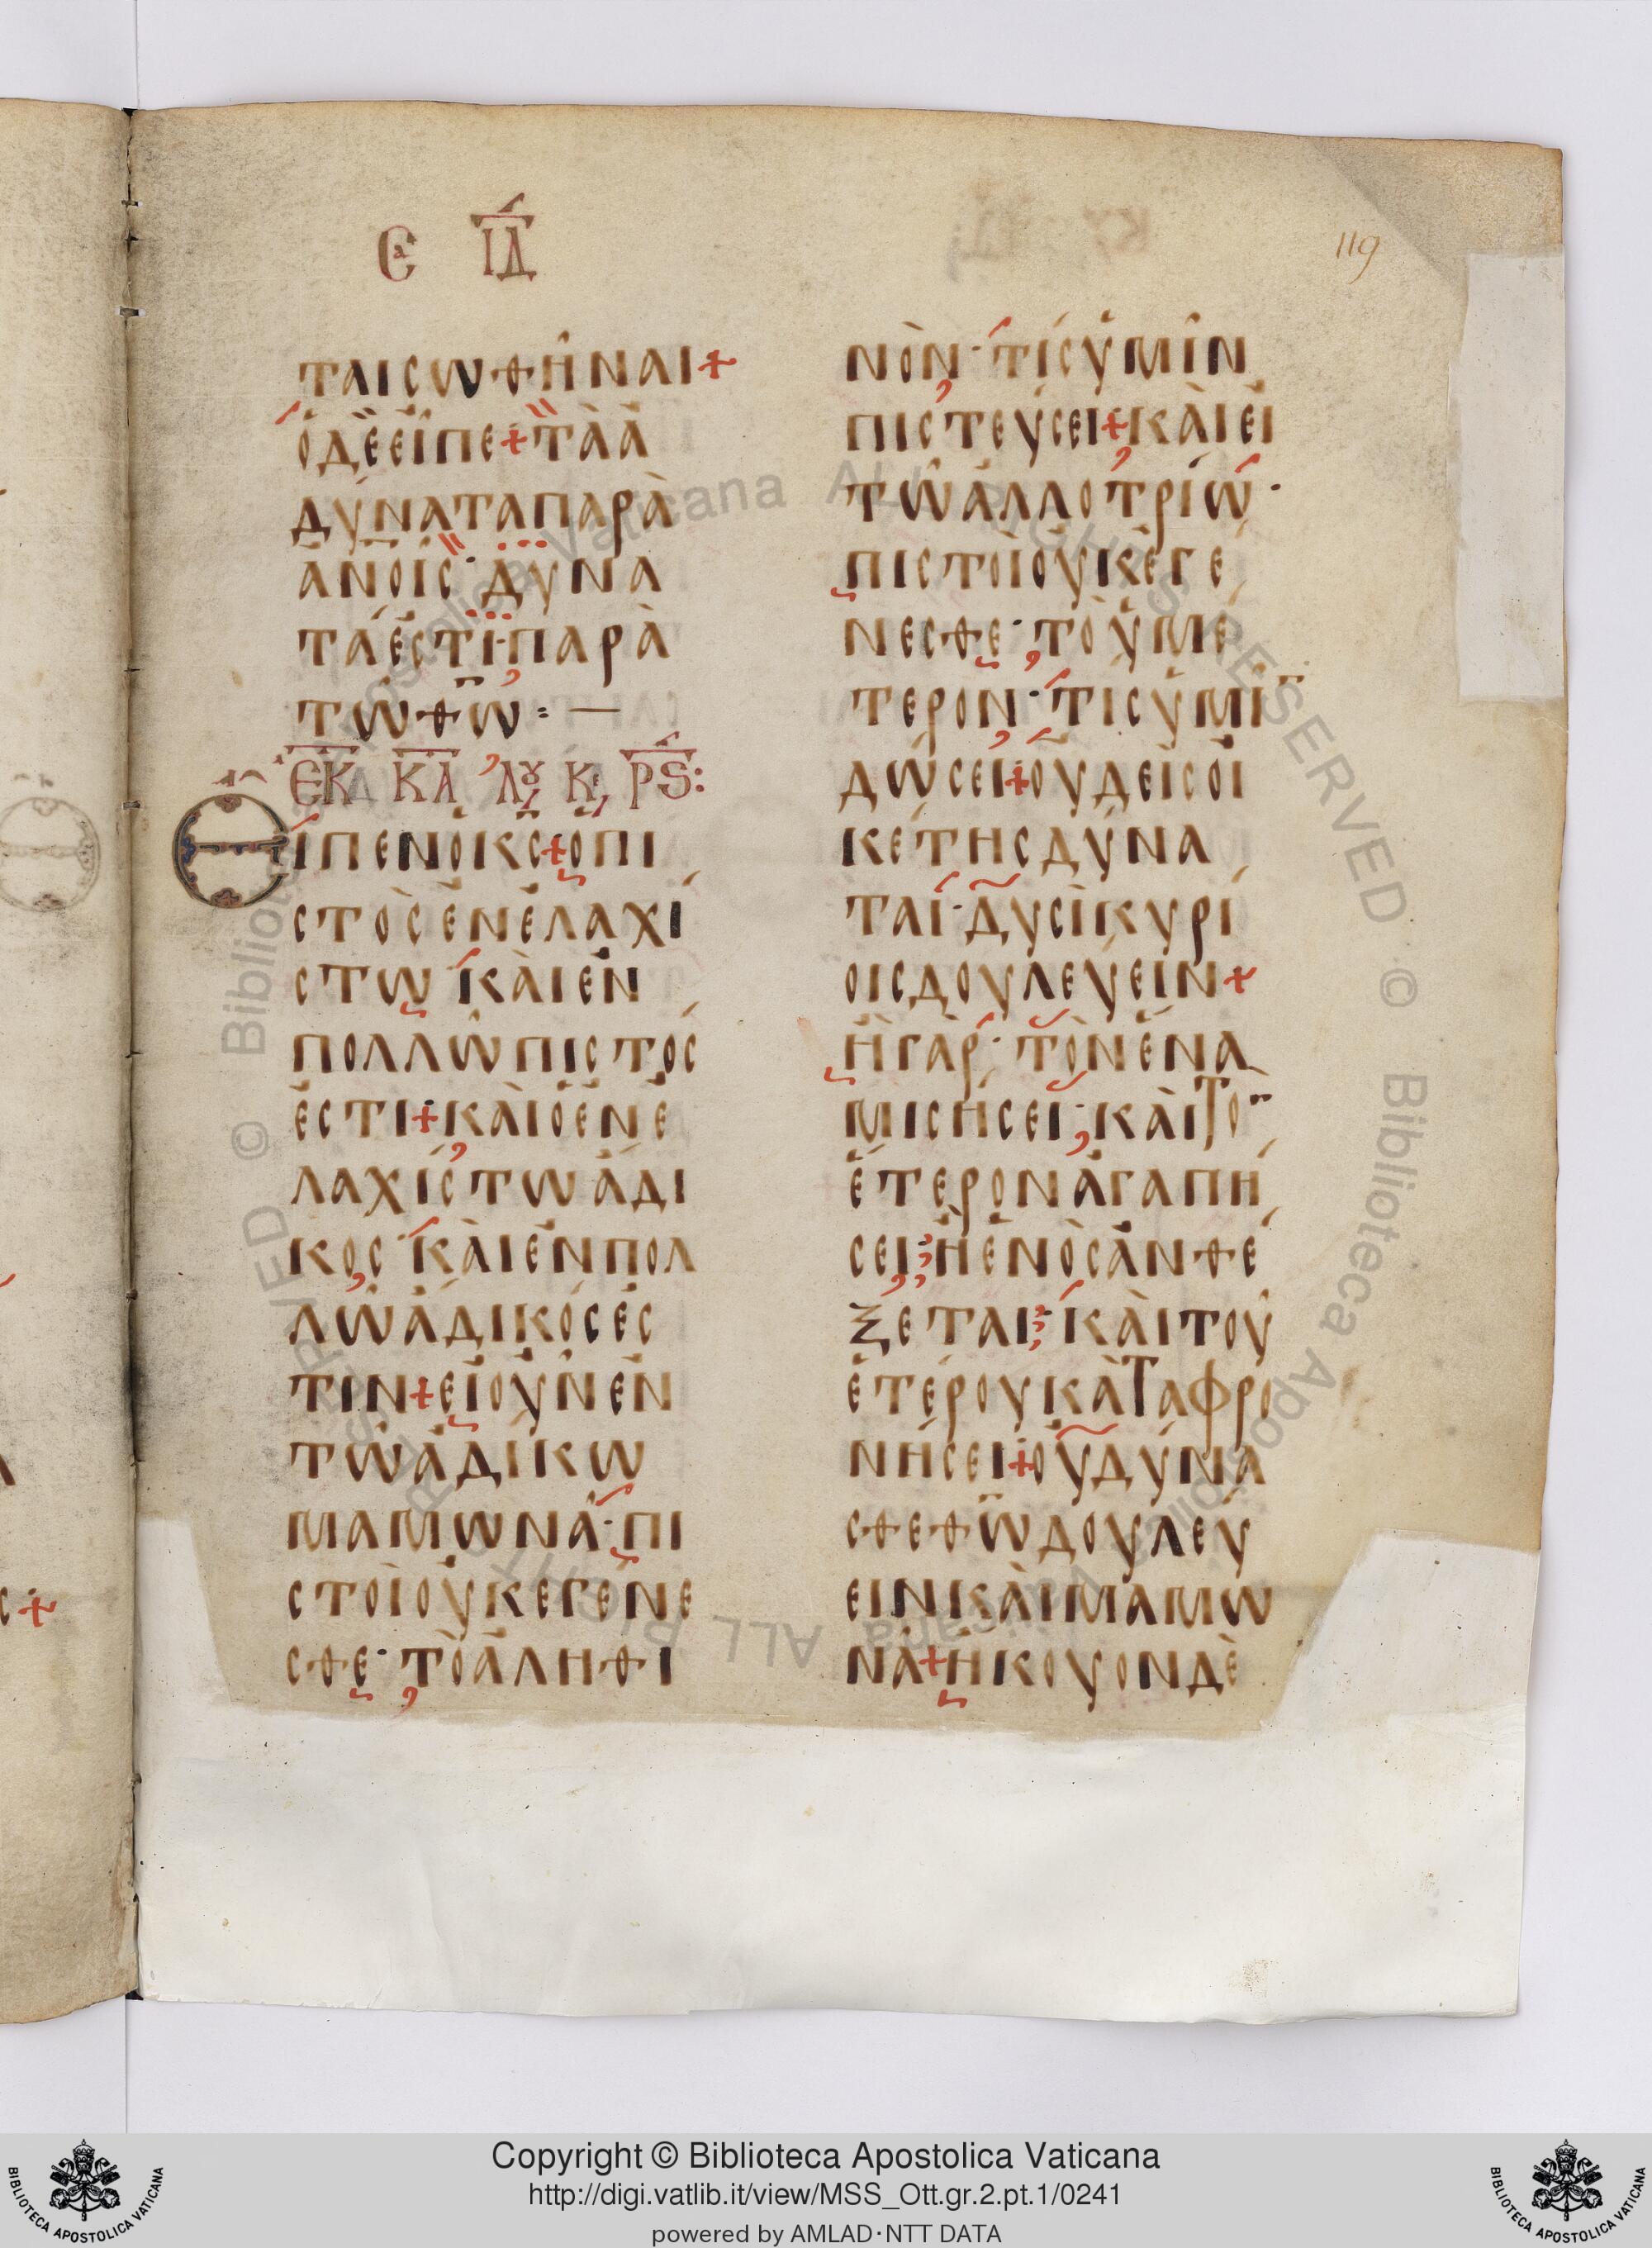 Ꞓα ΙΔ
119
ΤΑΙΣΩΘΗ͂ΝΑΙ+
ὉΔῈΕἾΠΕ+ΤᾺἈ
ΔΎΝΑΤΑΠΑΡᾺ
ἈΝΟΙΣ·ΔΥΝΑ
ΤΆἘΣΤΙ·ΠΑΡᾺ
ΤΩΘΩ:—
ἘΚ ΚΑ ΛΟΥ ΚΕ ΡϚ:
ΕἾΠΕΝὉΚΣ+ὉΠΙ
ΣΤῸΣἘΝἘΛΑΧΊ
ΣΤΩ·ΚᾺΙἘΝ
ΠΟΛΛΩ͂ΠΙΣΤΌΣ
ἘΣΤΙ+ΚᾺΙὉἘΝἘ
ΛΑΧΊΣΤΩἌΔΙ
ΚΟΣ·ΚᾺΙἘΝΠΟΛ
ΛΩ͂ἌΔΙΚΌΣἘΣ
ΤΙΝ+ΕἸΟΥ̓͂ΝἘΝ
ΤΩ͂ἈΔΊΚΩ
ΜΑΜΩΝΑ͂·ΠΙ
ΣΤΟῚΟΥ̓ΚΕΓΈΝΕ
ΣΘΕ·ΤῸἈΛΗΘΙ
ΝῸΝ·ΤΊΣὙΜΙ͂Ν
ΠΙΣΤΕΎΣΕΙ+ΚᾺΙΕἸ
ΤΩ͂ἈΛΛΟΤΡΊΩ·
ΠΙΣΤΟῚΟΥ̓ΚἘΓΈ
ΝΕΣΘΕ·ΤῸὙΜΈ
ΤΕΡΟΝ·ΤΙΣὙΜΙ͂
ΔΏΣΕΙ+ΟΥ̓ΔΕῚΣΟἸ
ΚΈΤΗΣΔΎΝΑ
ΤΑΙ·ΔΥΣῚΚΥΡΊ
ΟΙΣΔΟΥΛΕΎΕΙΝ+
ἪΓᾺΡ·ΤῸΝἝΝΑ
ΜΙΣΉΣΕΙ·ΚᾺΙΤΟ
ἝΤΕΡΟΝἈΓΑΠΉ
ΣΕΙ·ἪἙΝῸΣἈΝΘΈ
ΞΕΤΑΙ·ΚᾺΙΤΟΥ͂
ἙΤΈΡΟΥΚΑΤΑΦΡΟ
ΝΉΣΕΙ+ΟΥ̓ΔΎΝΑ
ΣΘΕΘΩΔΟΥΛΕΎ
ΕΙΝΚᾺΙΜΑΜΩ
ΝΑ͂+ἬΚΟΥΟΝΔῈ
Copyright © Biblioteca Apostolica Vaticana
http://digi.vatlib.it/view/MSS_Ott.gr.2.pt.1/0241
powered by AMLAD·NTT DATA
BIBLIOTECA APOSTOLICA VATICANA
BIBLIOTECA APOSTOLICA VATICANA